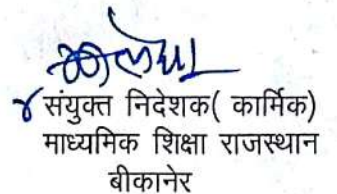 संयुक्त निदेशक( कार्मिक)
माध्यमिक शिक्षा राजस्थान
बीकानेर